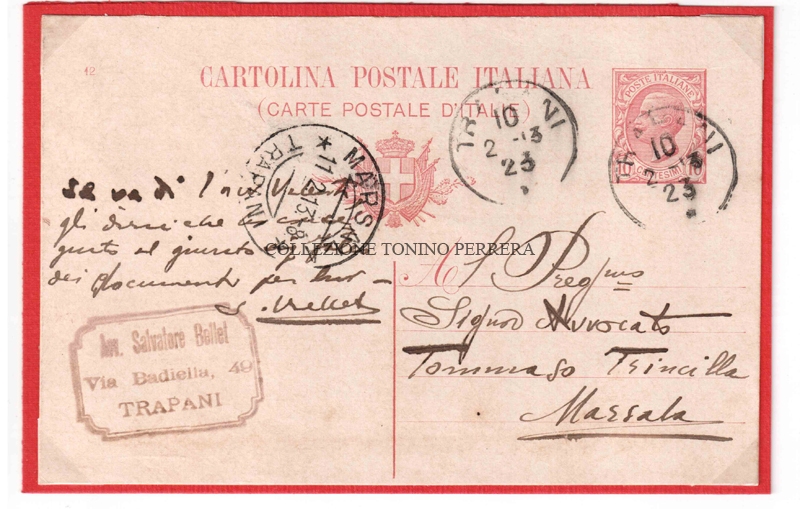 12
CARTOLINA POSTALE ITALIANA
(CARTE POSTALE D'ITALIE)
POSTE ITALIANE
CENTESIMI 10
TRAPANI
10
2-13
23
TRAPANI
10
2-13
23
MARSALA
TRAPANI
11.2.13
se va di
gli dirai che
gusto al giusto
dei documenti per
S. Bellet
COLLEZIONE TONINO PERRERA
Al Pregmo
Signor Avvocato
Tommaso Trincilla
Marsala
Avv. Salvatore Bellet
Via Badiella, 49
TRAPANI